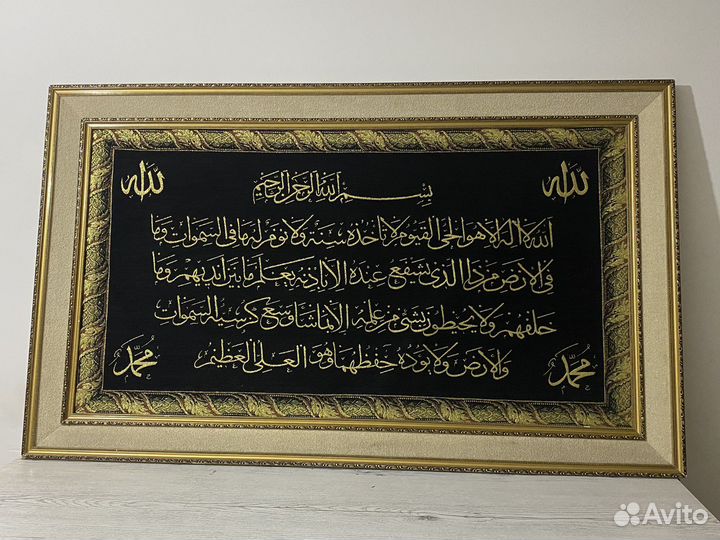 الله
الله
بسم الله الرحمن الرحيم
الله لا اله الا هو الحي القيوم لا تأخذه سنة ولا نوم له ما في السموات وما
في الارض من ذا الذي يشفع عنده الا باذنه يعلم ما بين ايديهم وما
خلفهم ولا يحيطون بشئ من علمه الا بما شاء وسع كرسيه السموات
والارض ولا يوده حفظهما وهو العلي العظيم
محمد
محمد
Avito